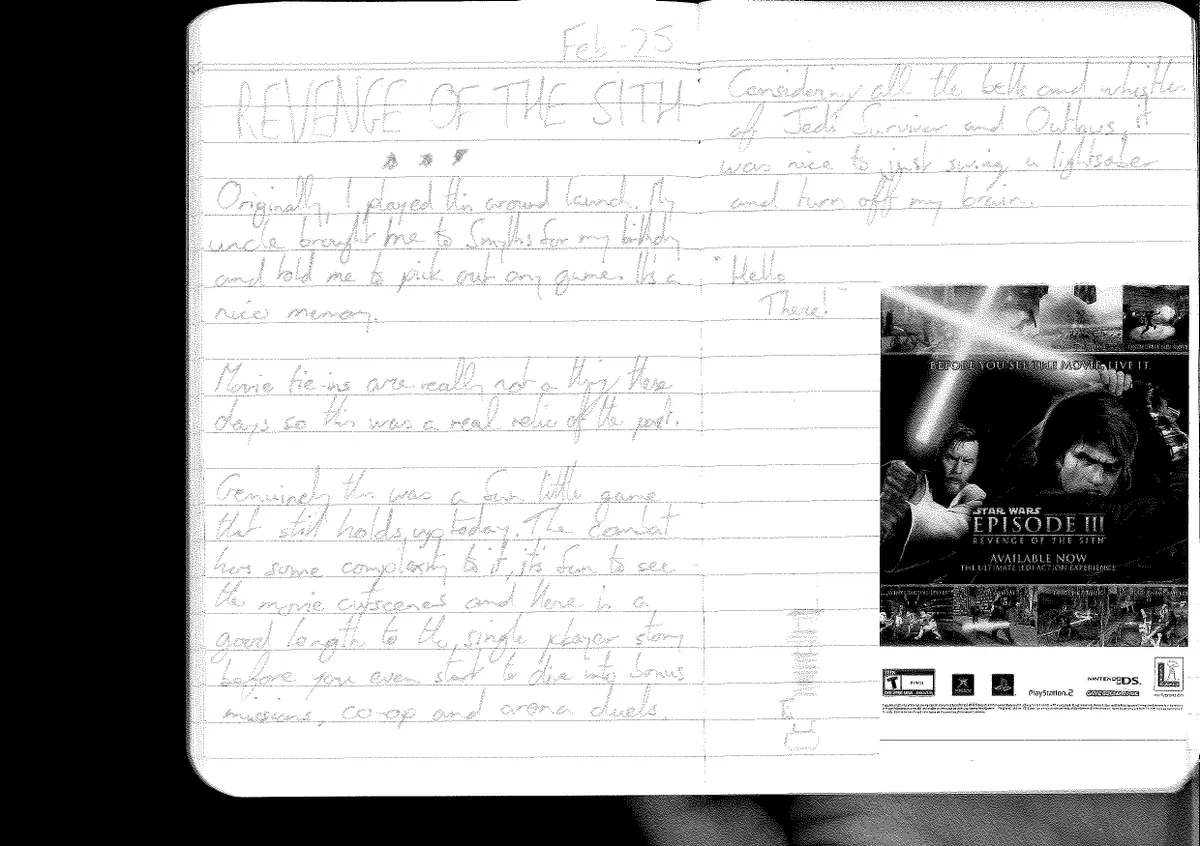 Feb -25
REVENGE OF THE SITH
Originally, I played this around launch. My
uncle brought me to Smyths for my birthday
and told me to pick out any game. It's a
nice memory.
Movie tie-ins are really not a thing these
days so this was a real relic of the past.
Genuinely this was a fun little game
that still holds up today. The combat
has some complexity to it, it's fun to see
the movie cutscenes and there is a
good length to the single player story
before you even start to dive into bonus
missions, co-op and arena duels.
Considering all the bells and whistles
of Jedi Survivor and Outlaws, it
was nice to just swing a lightsaber
and turn off my brain.
"Hello
There!"
BEFORE YOU SEE THE MOVIE, LIVE IT.
STAR WARS
EPISODE III
REVENGE OF THE SITH
AVAILABLE NOW
THE ULTIMATE JEDI ACTION EXPERIENCE
T
PlayStation.2
NINTENDO DS
GAME BOY ADVANCE